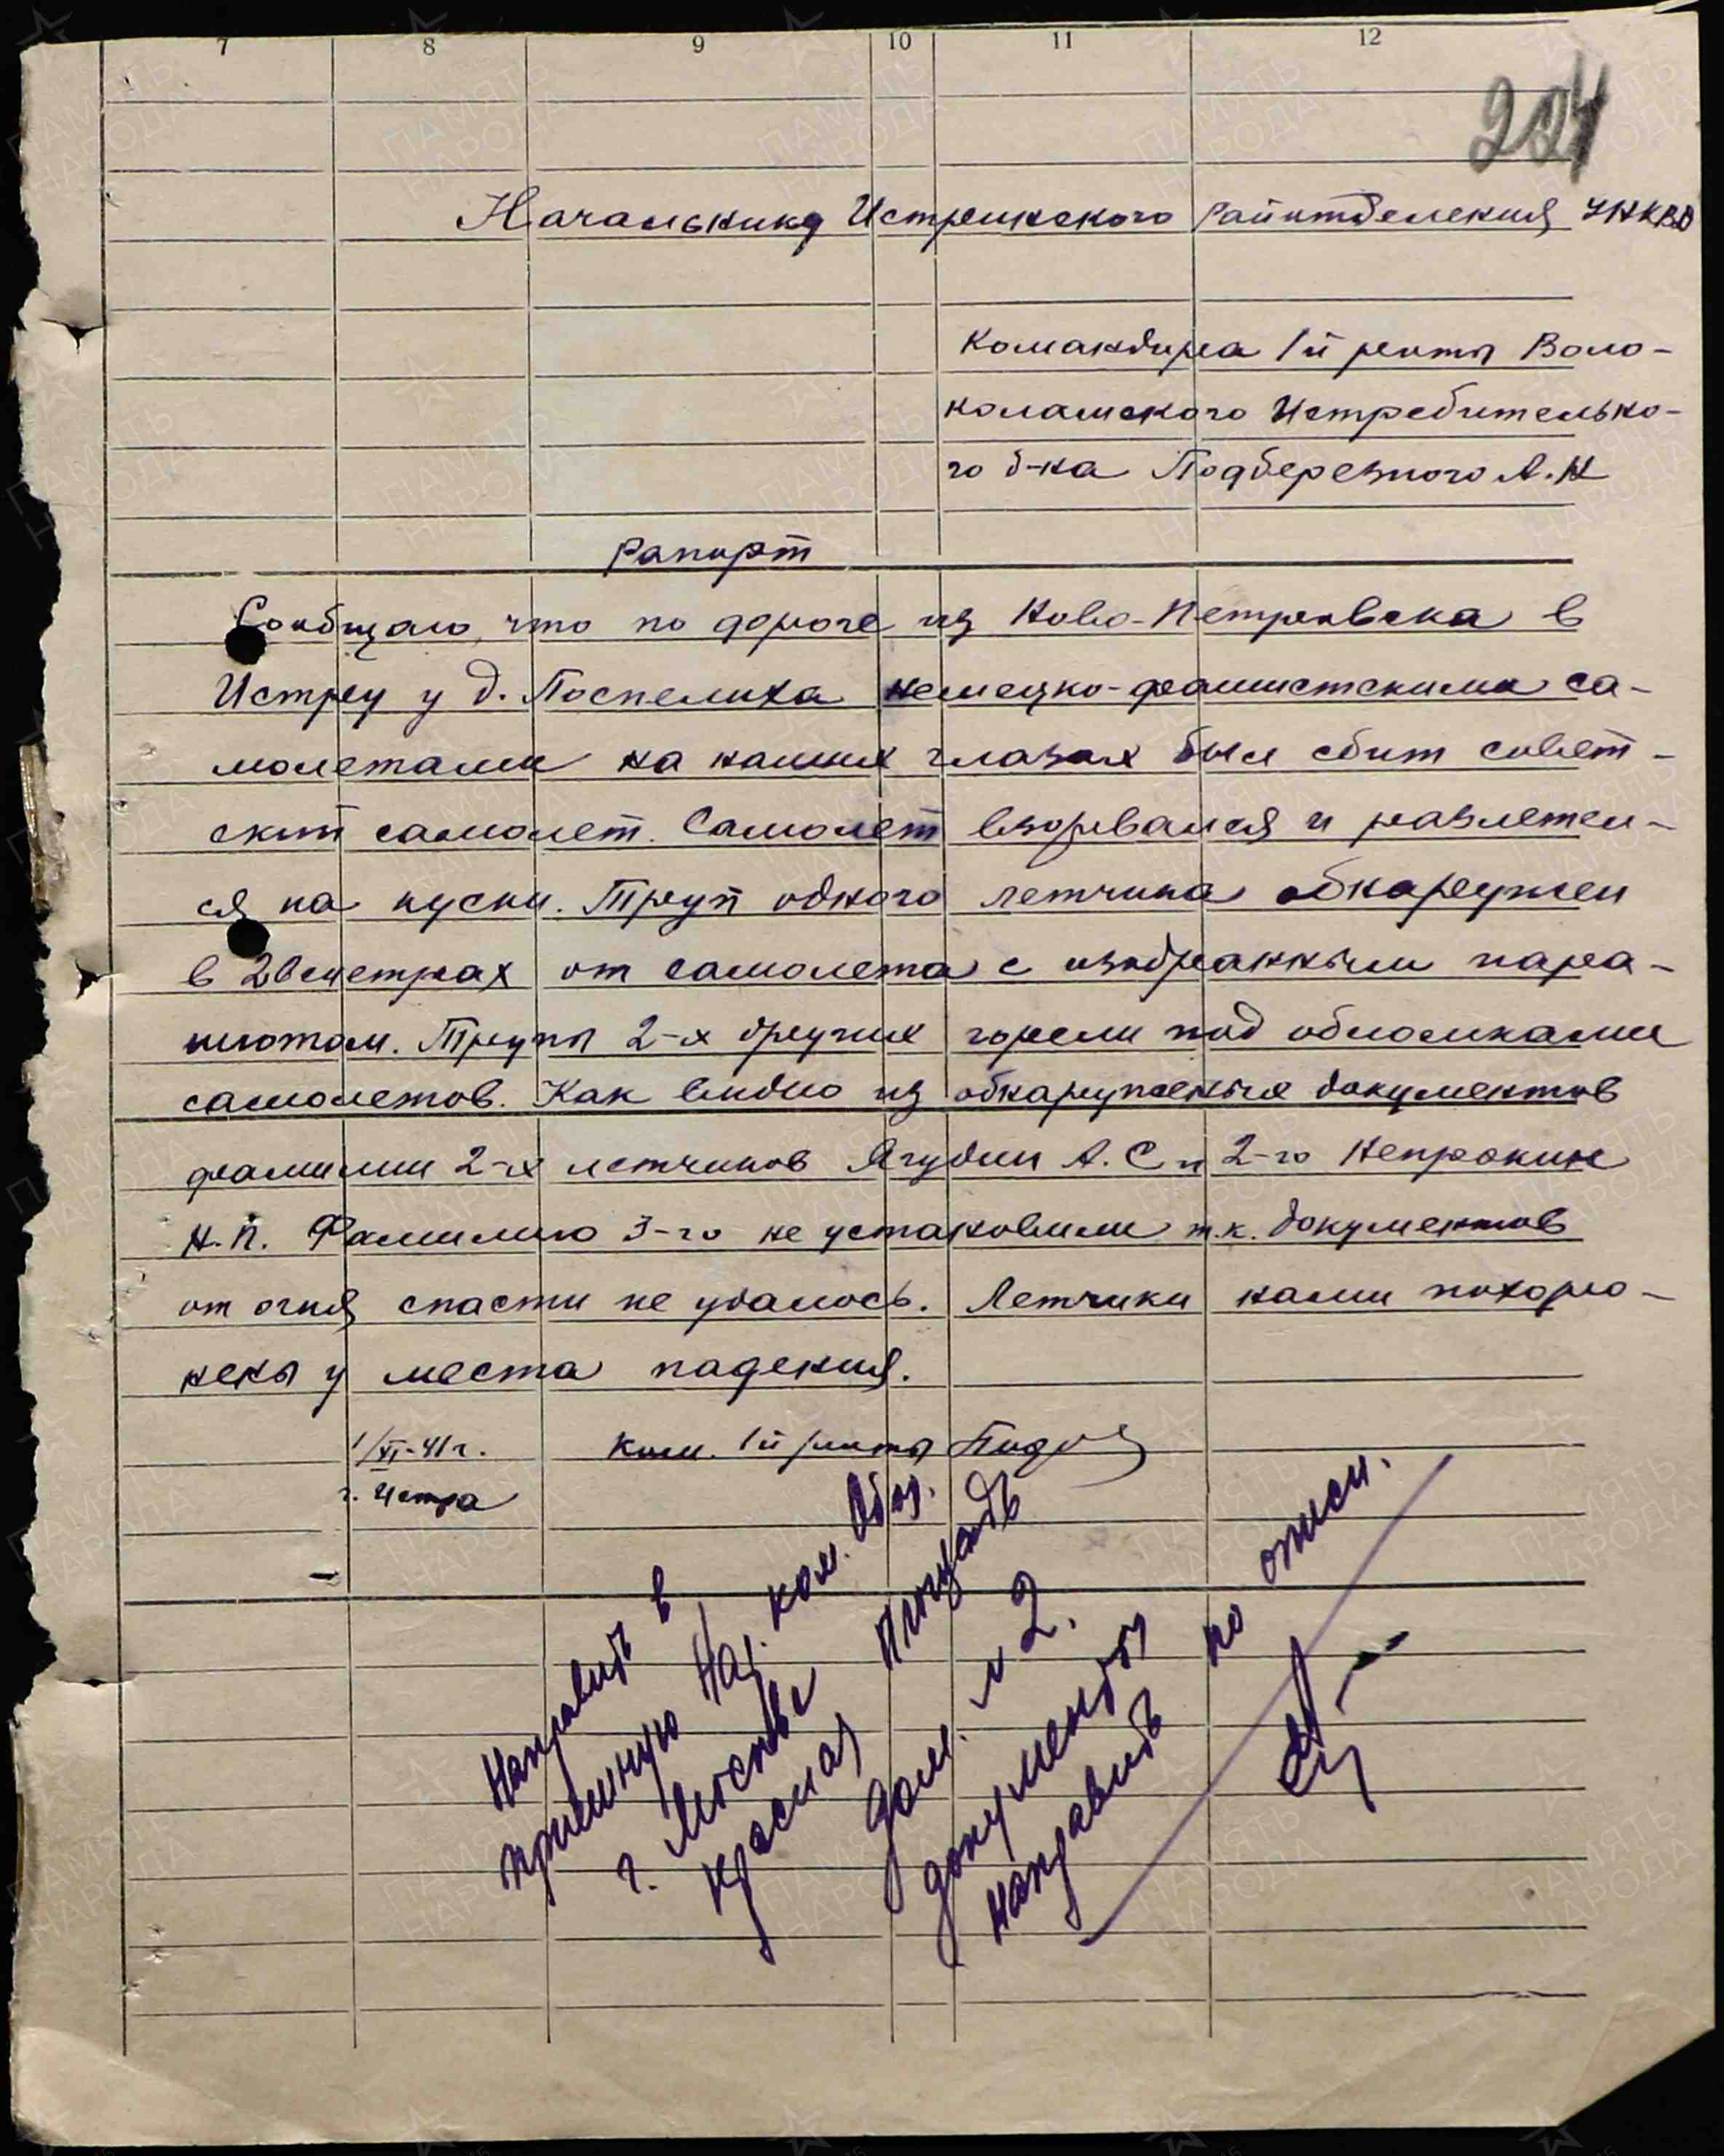 7 8 9 10 11 12
224
Начальнику Истринского райотделения УНКВД
Командира 1й роты Воло-
коламского Истребительно-
го б-на Подберезного А.Н
Рапорт
Сообщаю, что по дороге из Ново-Петровска в
Истру у д. Поспелиха немецко-фашистскими са-
молетами на наших глазах был сбит совет-
ский самолет. Самолет взорвался и разлетел-
ся на куски. Труп одного летчика обнаружен
в метрах от самолета с изодранным пара-
шютом. Трупы 2-х других горели под обломками
самолетов. Как видно из обнаруженых документов
фамилии 2-х летчиков Ягудин А.С и 2-го Непрокин
Н.П. Фамилию 3-го не установили т.к. документов
от огня спасти не удалось. Летчики нами похоро-
нены у места падения.
1/XI-41г. Ком. 1й роты
г. Истра
Направить в
приемную Нар. ком. Обор.
г. Москва
Красная Площадь
дом. № 2.
документы
направить по описи.